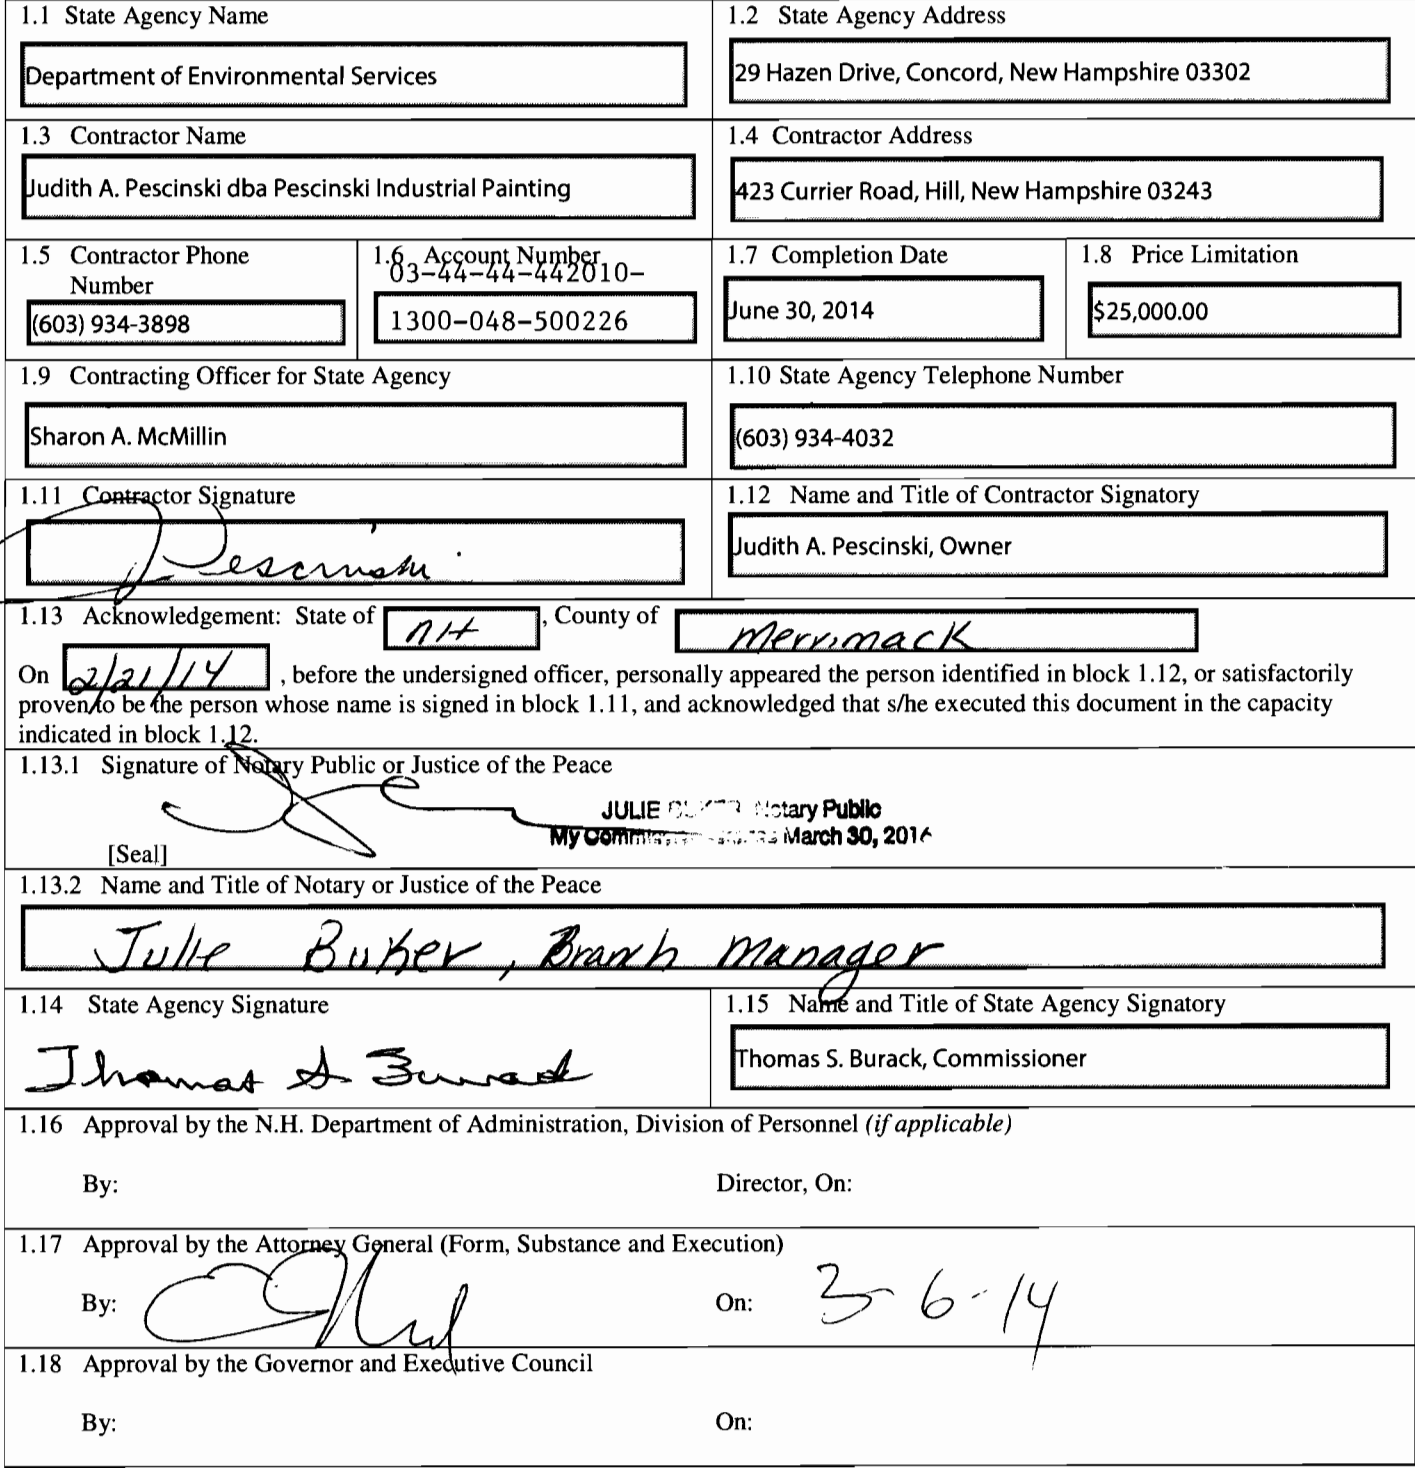 1.1 State Agency Name
Department of Environmental Services
1.2 State Agency Address
29 Hazen Drive, Concord, New Hampshire 03302
1.3 Contractor Name
Judith A. Pescinski dba Pescinski Industrial Painting
1.4 Contractor Address
423 Currier Road, Hill, New Hampshire 03243
1.5 Contractor Phone
Number
(603) 934-3898
1.6 Account Number
03-44-44-442010-
1300-048-500226
1.7 Completion Date
June 30, 2014
1.8 Price Limitation
$25,000.00
1.9 Contracting Officer for State Agency
Sharon A. McMillin
1.10 State Agency Telephone Number
(603) 934-4032
1.11 Contractor Signature
J Pescinski
1.12 Name and Title of Contractor Signatory
Judith A. Pescinski, Owner
1.13 Acknowledgement: State of NH, County of Merrimack
On 2/21/14, before the undersigned officer, personally appeared the person identified in block 1.12, or satisfactorily
proven to be the person whose name is signed in block 1.11, and acknowledged that s/he executed this document in the capacity
indicated in block 1.12.
1.13.1 Signature of Notary Public or Justice of the Peace
JULIE Notary Public
My March 30, 2016
[Seal]
1.13.2 Name and Title of Notary or Justice of the Peace
Julie Buker, Branch Manager
1.14 State Agency Signature
Thomas S Burack
1.15 Name and Title of State Agency Signatory
Thomas S. Burack, Commissioner
1.16 Approval by the N.H. Department of Administration, Division of Personnel (if applicable)
By: Director, On:
1.17 Approval by the Attorney General (Form, Substance and Execution)
By: On: 3-6-14
1.18 Approval by the Governor and Executive Council
By: On: